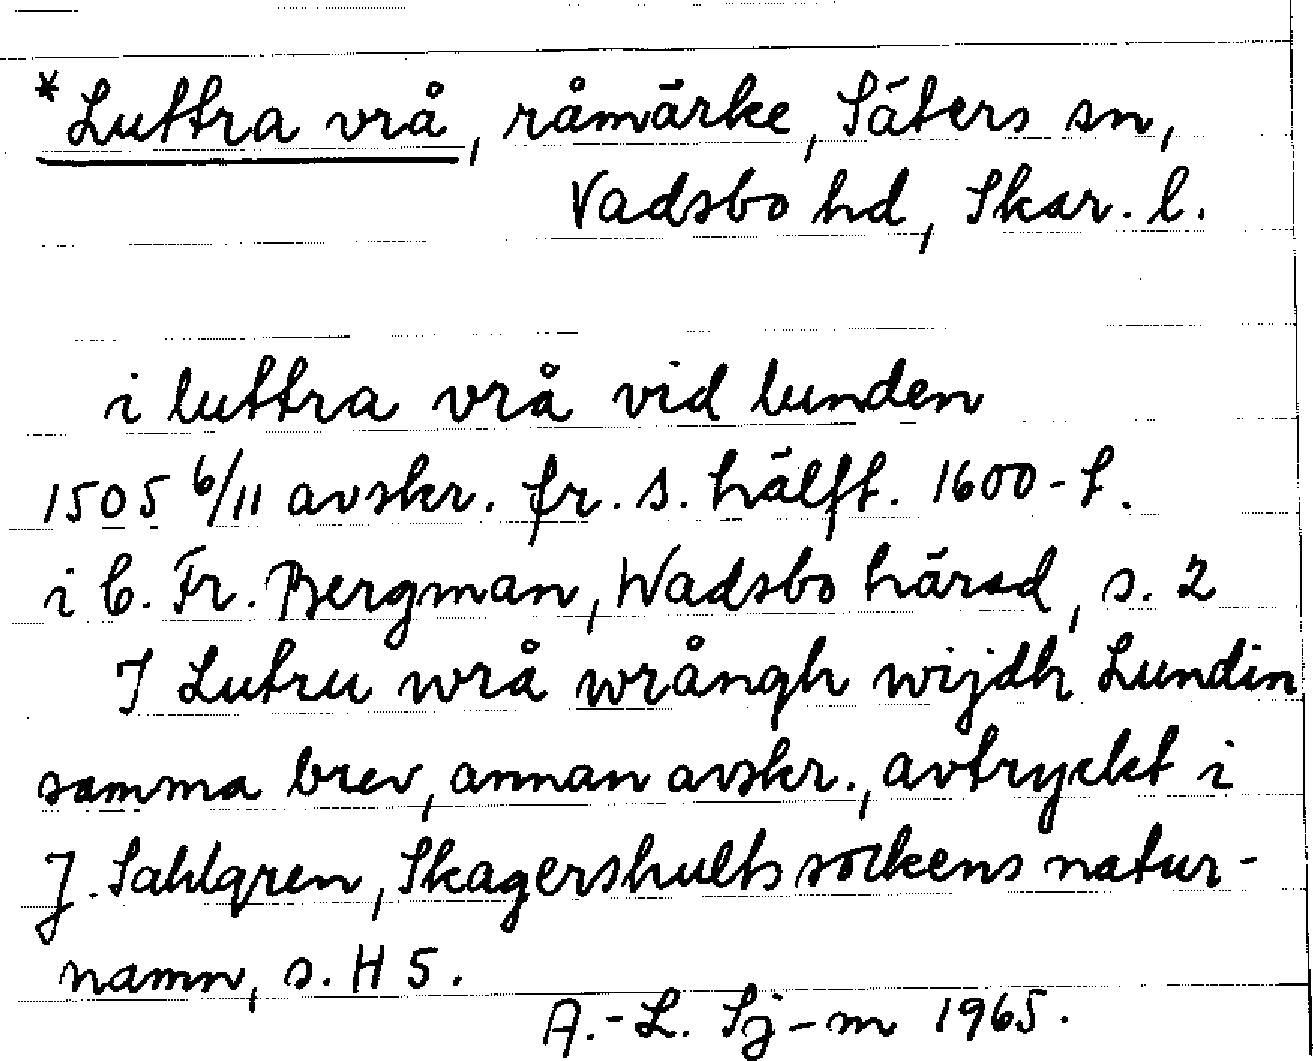 *Luttra vrå, råmärke, Säters sn,
Vadsbo hd, Skar. l.
i luttra vrå vid lunden
1505 6/11 avskr. fr. s. hälft. 1600-t.
i C. Fr. Bergman, Wadsbo härad, s. 2
I Lutru wrå wrångh wijdh Lundin
samma brev, annan avskr., avtryckt i
J. Sahlgren, Skagershults sockens natur-
namn, s. H 5.
A.-L. Sj-m 1965.